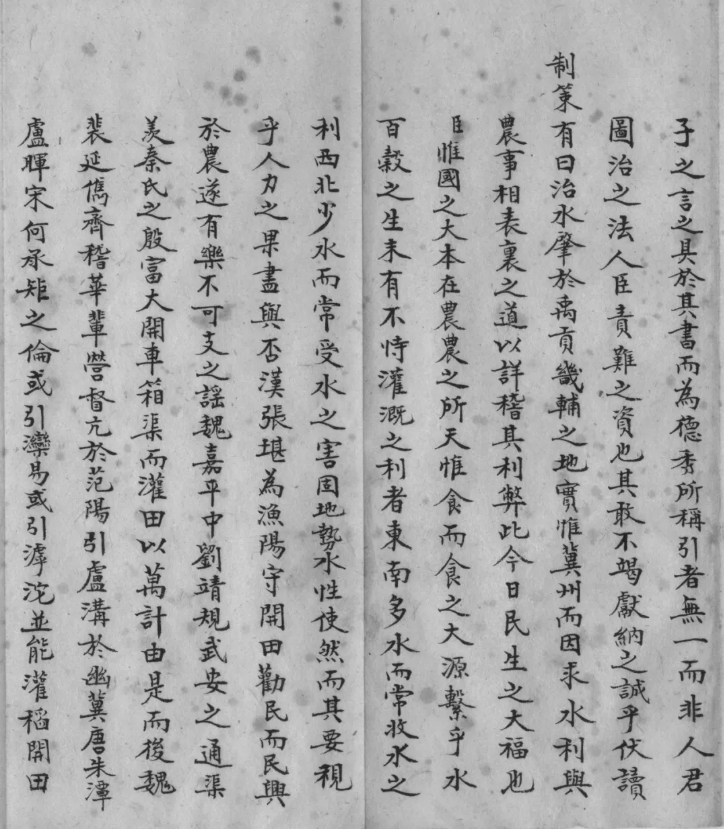 子之言之具於其書而為德秀所稱引者無一而非人君
圖治之法人臣責難之資也其敢不竭獻納之誠乎伏讀
制策有曰治水肇於禹貢畿輔之地實惟冀州而因求水利與
農事相表裏之道以詳稽其利弊此今日民生之大福也
臣惟國之大本在農農之所天惟食而食之大源繫乎水
百穀之生未有不恃灌溉之利者東南多水而常收水之
利西北少水而常受水之害固地勢水性使然而其要視
乎人力之果盡與否漢張堪為漁陽守開田勸民而民興
於農遂有樂不可支之謡魏嘉平中劉靖規武安之通渠
羨秦氏之殷富大開車箱渠而灌田以萬計由是而後魏
裴延儁齊稽華輩營督亢於范陽引盧溝於幽冀唐朱潭
盧暉宋何承矩之倫或引灤易或引滹沱並能灌稻開田